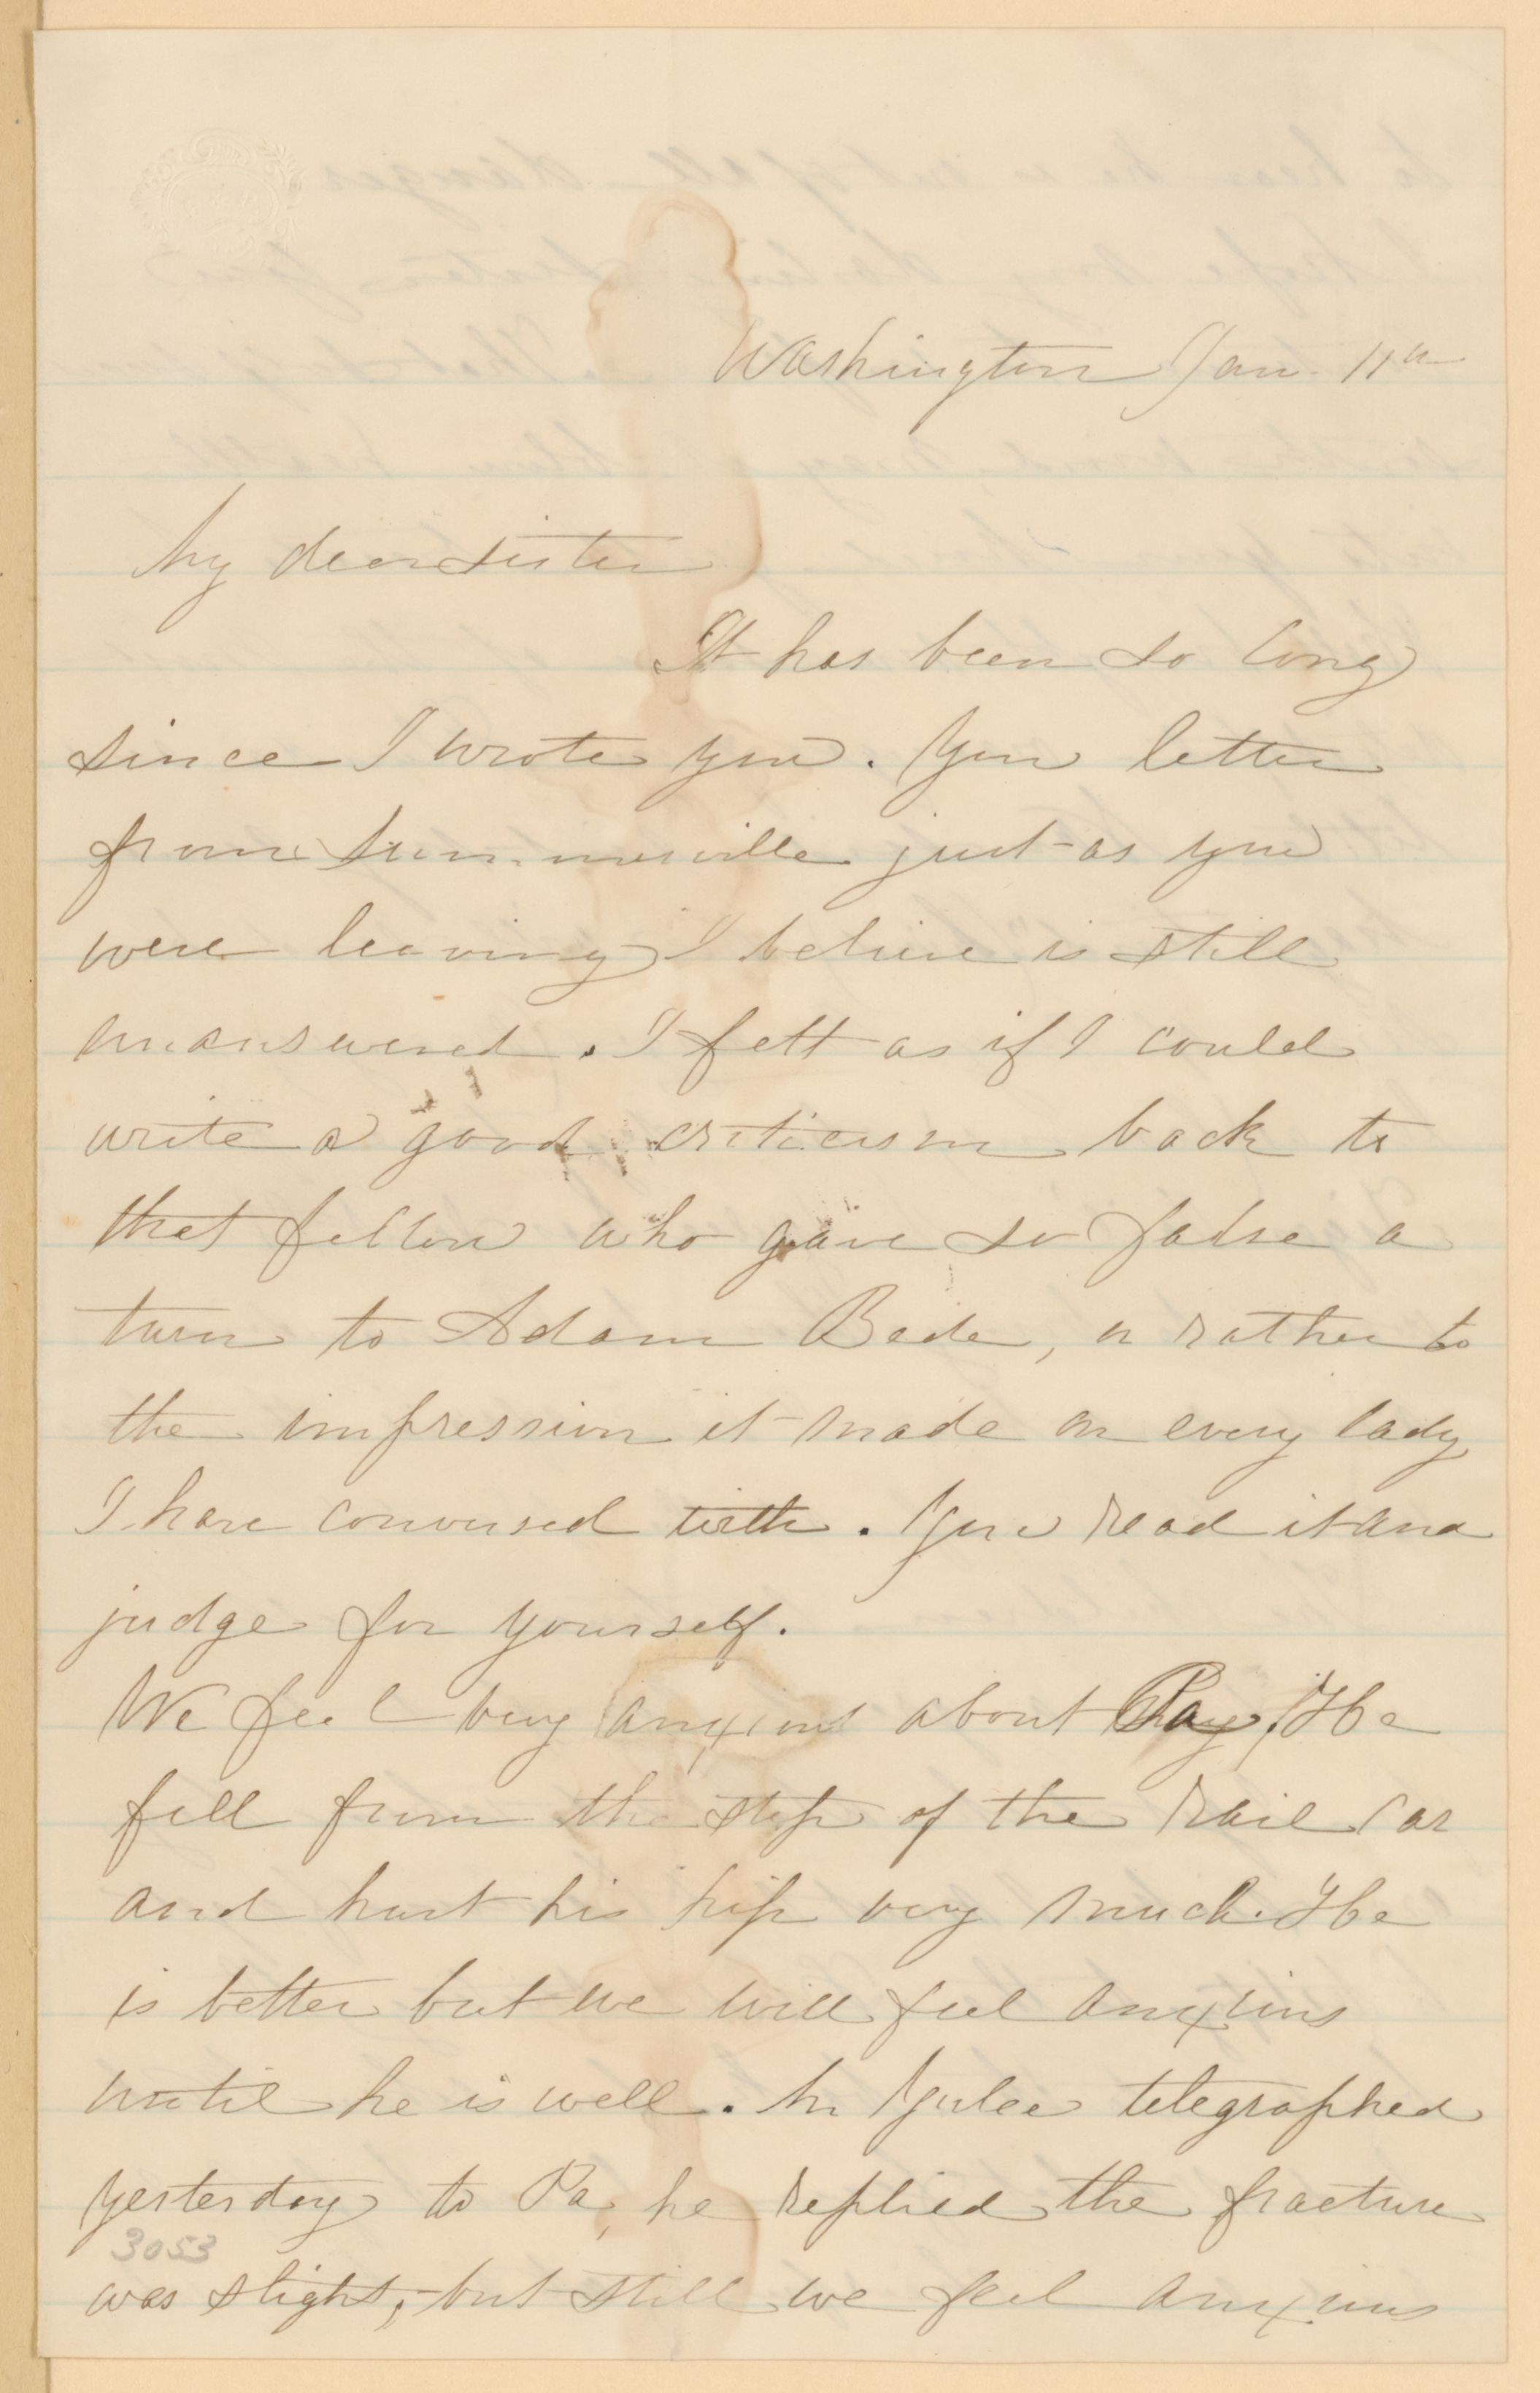 Washington Jan. 11th
My dear sister
It has been so long
since I wrote you. Your letter
from Summerville just as you
were leaving I believe is still
unanswered. I felt as if I could
write a good criticism back to
that fellow who gave so false a
turn to Adam Bede, or rather to
the impression it made on every lady
I have conversed with. You read it and
judge for yourself.
We feel very anxious about Pa. He
fell from the step of the rail car
and hurt his hip very much. He
is better but we will feel anxious
until he is well. Mr Yulee telegraphed
yesterday to Pa, he replied the fracture
3053
was slight, but still we feel anxious